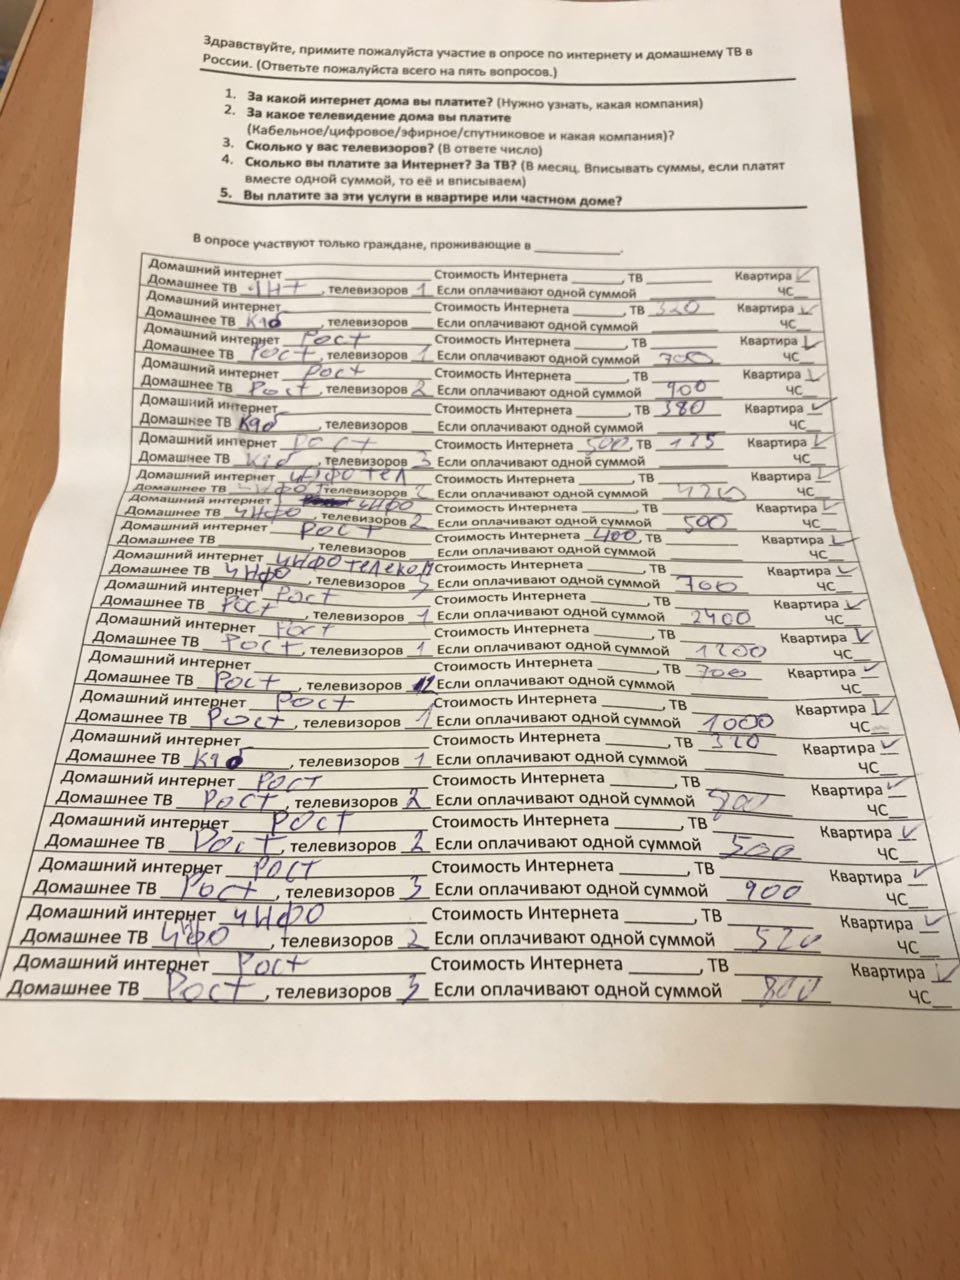 Здравствуйте, примите пожалуйста участие в опросе по интернету и домашнему ТВ в
России. (Ответьте пожалуйста всего на пять вопросов.)
1. За какой интернет дома вы платите? (Нужно узнать, какая компания)
2. За какое телевидение дома вы платите
(Кабельное/цифровое/эфирное/спутниковое и какая компания)?
3. Сколько у вас телевизоров? (В ответе число)
4. Сколько вы платите за Интернет? За ТВ? (В месяц. Вписывать суммы, если платят
вместе одной суммой, то её и вписываем)
5. Вы платите за эти услуги в квартире или частном доме?
В опросе участвуют только граждане, проживающие в ____________.
Домашний интернет Стоимость Интернета , ТВ Квартира ✓
Домашнее ТВ , телевизоров 1 Если оплачивают одной суммой ЧС
Домашний интернет Стоимость Интернета , ТВ 320 Квартира ✓
Домашнее ТВ Каб , телевизоров Если оплачивают одной суммой ЧС
Домашний интернет Рост Стоимость Интернета , ТВ Квартира ✓
Домашнее ТВ Рост , телевизоров 1 Если оплачивают одной суммой 700 ЧС
Домашний интернет Рост Стоимость Интернета , ТВ Квартира ✓
Домашнее ТВ Рост , телевизоров 2 Если оплачивают одной суммой 900 ЧС
Домашний интернет Стоимость Интернета , ТВ 380 Квартира ✓
Домашнее ТВ Каб , телевизоров Если оплачивают одной суммой ЧС
Домашний интернет Рост Стоимость Интернета 500, ТВ 175 Квартира ✓
Домашнее ТВ Каб , телевизоров 3 Если оплачивают одной суммой ЧС
Домашний интернет инфотел Стоимость Интернета , ТВ Квартира ✓
Домашнее ТВ инфо , телевизоров 2 Если оплачивают одной суммой ЧС
Домашний интернет инфо Стоимость Интернета , ТВ Квартира ✓
Домашнее ТВ инфо , телевизоров 2 Если оплачивают одной суммой 500 ЧС
Домашний интернет Рост Стоимость Интернета 400, ТВ Квартира ✓
Домашнее ТВ , телевизоров Если оплачивают одной суммой ЧС
Домашний интернет инфотелеком Стоимость Интернета , ТВ Квартира ✓
Домашнее ТВ инфо , телевизоров 3 Если оплачивают одной суммой 700 ЧС
Домашний интернет Рост Стоимость Интернета , ТВ Квартира ✓
Домашнее ТВ Рост , телевизоров 1 Если оплачивают одной суммой 2400 ЧС
Домашний интернет Рост Стоимость Интернета , ТВ Квартира ✓
Домашнее ТВ Рост , телевизоров 1 Если оплачивают одной суммой 1200 ЧС
Домашний интернет Стоимость Интернета , ТВ 700 Квартира ✓
Домашнее ТВ Рост , телевизоров 2 Если оплачивают одной суммой ЧС
Домашний интернет Рост Стоимость Интернета , ТВ Квартира ✓
Домашнее ТВ Рост , телевизоров 1 Если оплачивают одной суммой 1000 ЧС
Домашний интернет Стоимость Интернета , ТВ 320 Квартира ✓
Домашнее ТВ Каб , телевизоров 1 Если оплачивают одной суммой ЧС
Домашний интернет Рост Стоимость Интернета , ТВ Квартира ✓
Домашнее ТВ Рост , телевизоров 2 Если оплачивают одной суммой ЧС
Домашний интернет Рост Стоимость Интернета , ТВ Квартира ✓
Домашнее ТВ Рост , телевизоров 2 Если оплачивают одной суммой 500 ЧС
Домашний интернет Рост Стоимость Интернета , ТВ Квартира ✓
Домашнее ТВ Рост , телевизоров 3 Если оплачивают одной суммой 900 ЧС
Домашний интернет инфо Стоимость Интернета , ТВ Квартира ✓
Домашнее ТВ инфо , телевизоров 2 Если оплачивают одной суммой 520 ЧС
Домашний интернет Рост Стоимость Интернета , ТВ Квартира ✓
Домашнее ТВ Рост , телевизоров 3 Если оплачивают одной суммой 800 ЧС